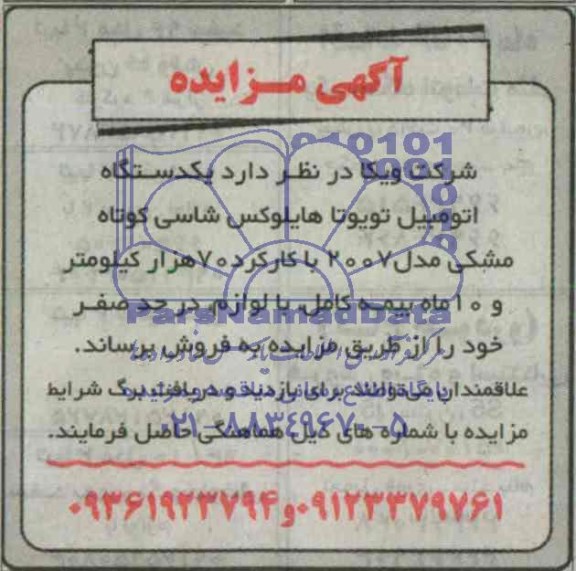 آگهی مزایده
شرکت ویکا در نظر دارد یکدستگاه
اتومبیل تویوتا هایلوکس شاسی کوتاه
مشکی مدل ۲۰۰۷ با کارکرد ۷۰هزار کیلومتر
و ۱۰ماه بیمه کامل با لوازم در حد صفر
خود را از طریق مزایده به فروش برساند.
علاقمندان می‌توانند برای بازدید و دریافت برگ شرایط
مزایده با شماره های ذیل هماهنگی حاصل فرمایند.
۰۹۱۲۳۳۷۹۷۶۱ و ۰۹۳۶۱۹۲۳۷۹۴
ParsNamadData
۰۲۱-۸۸۳۴۹۶۷۰-۵